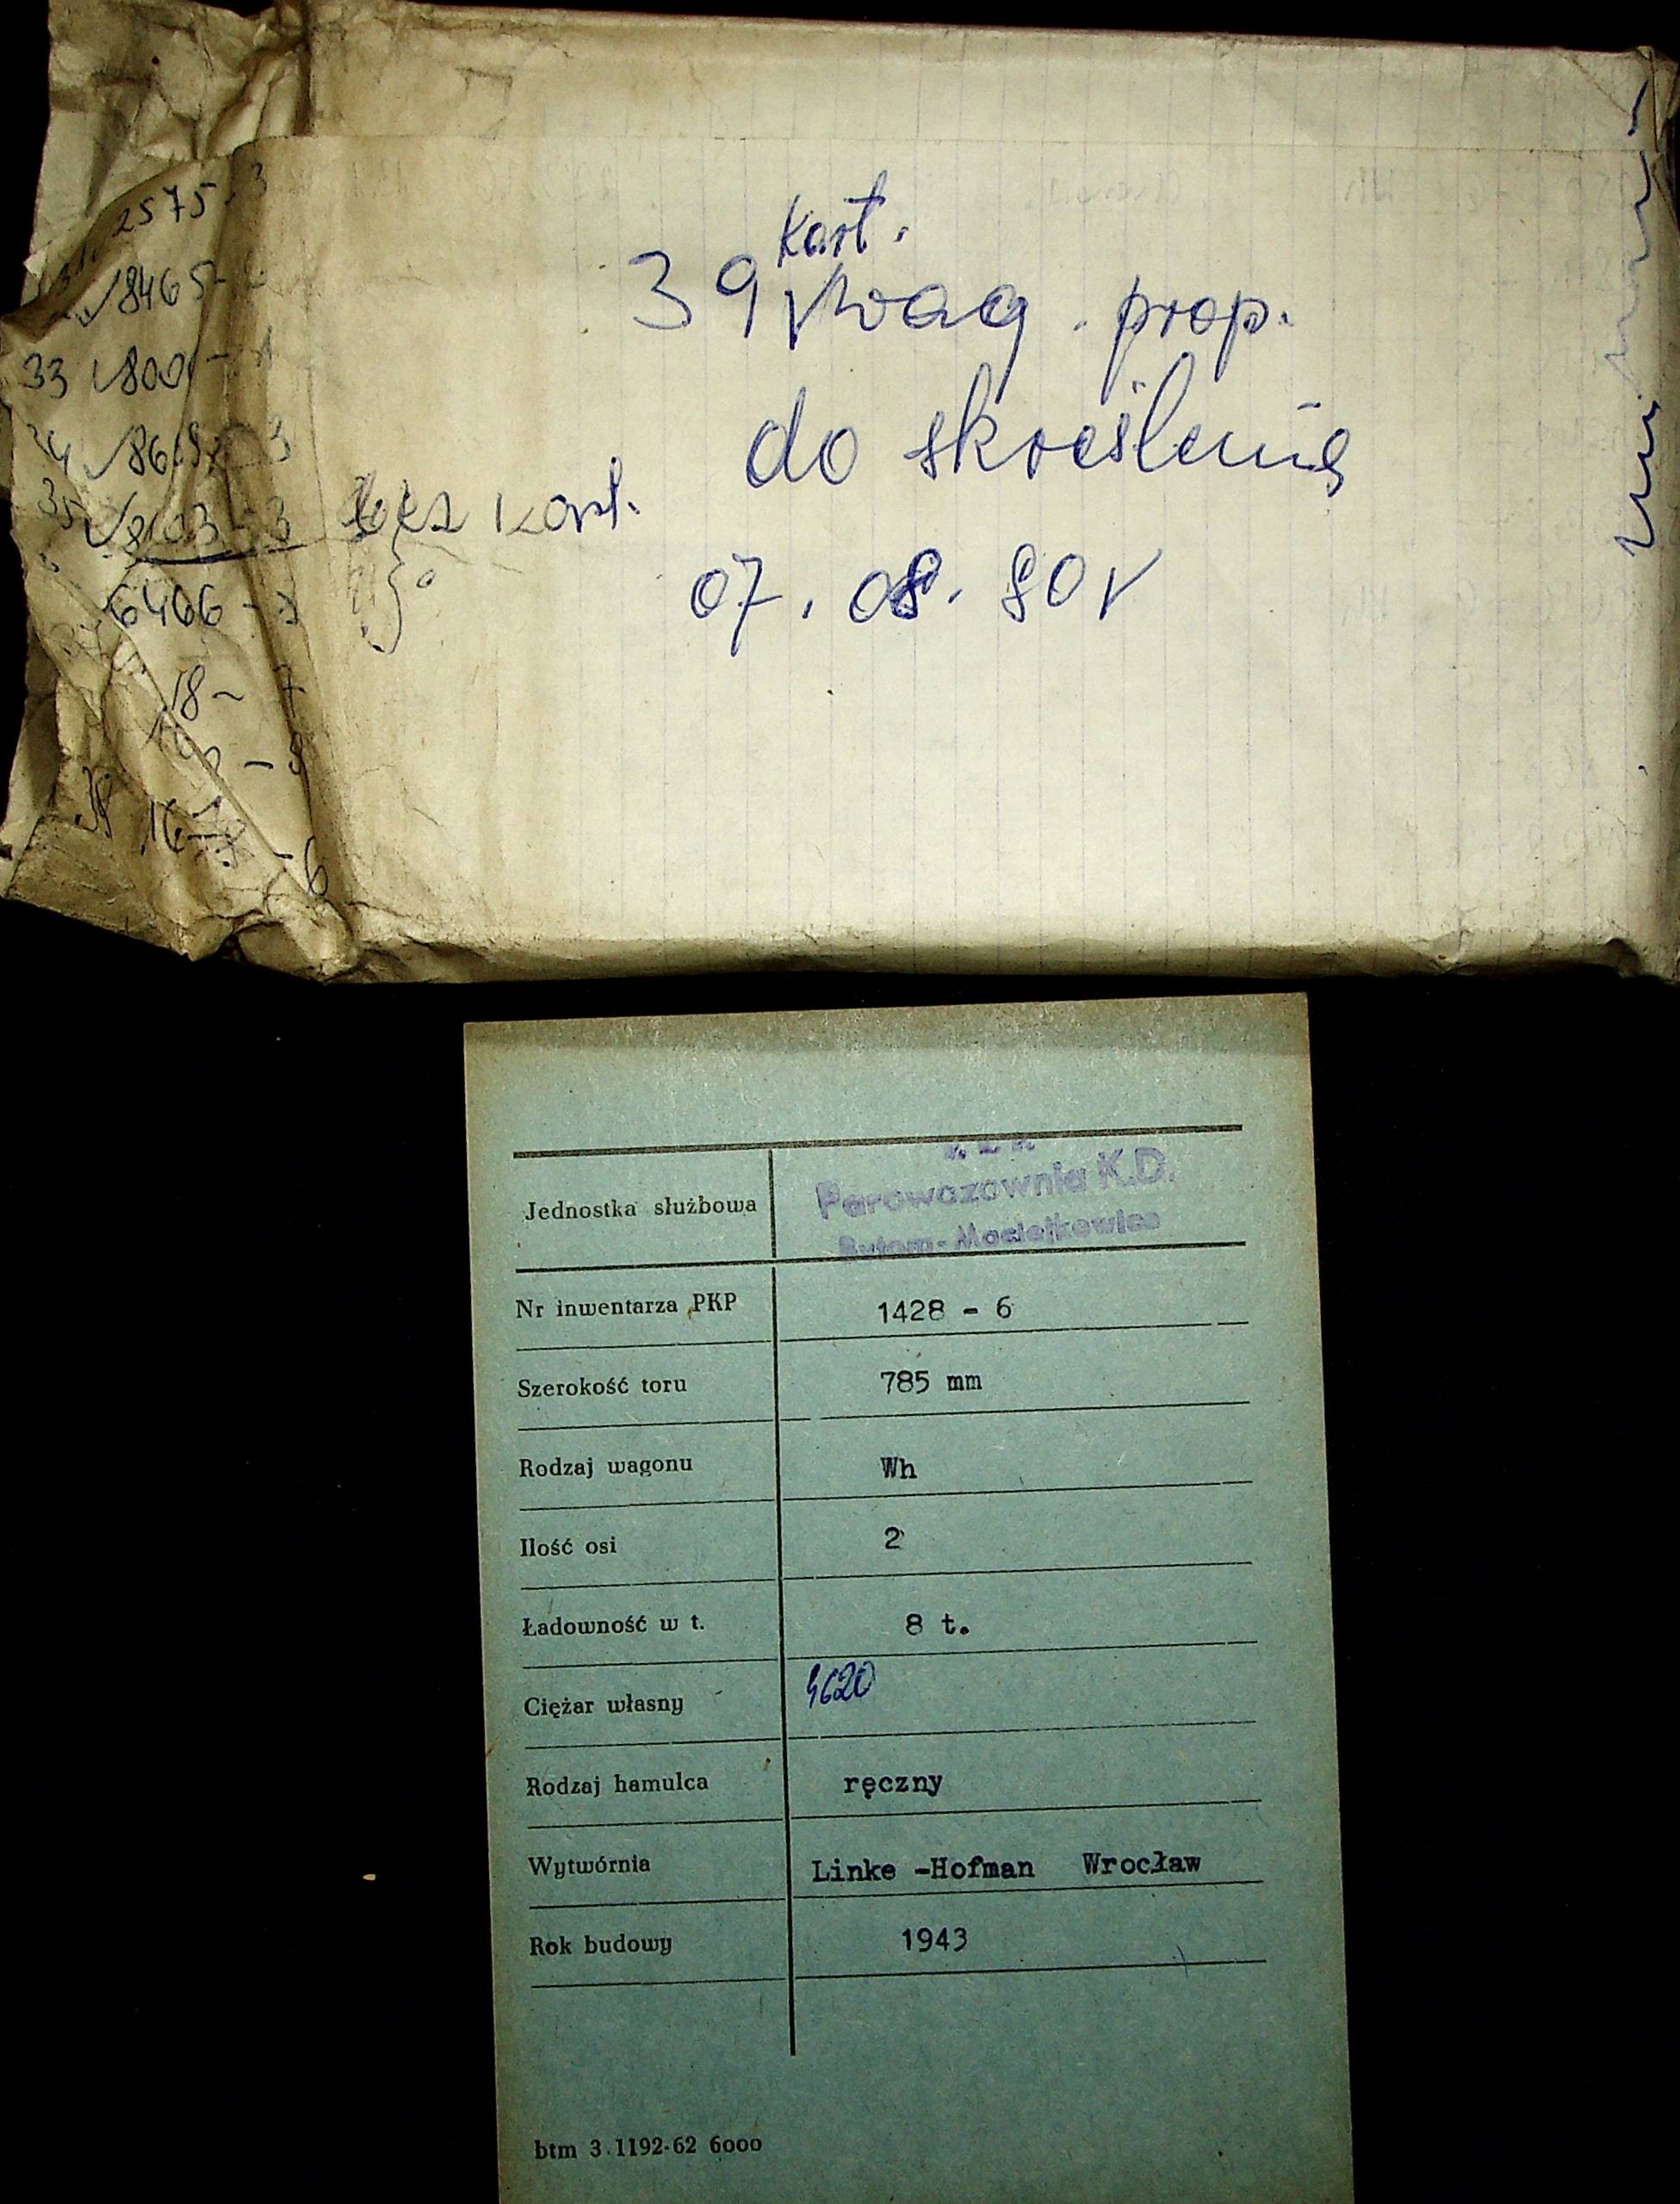 2575-3
8465-
33 800
35 8103-3
6466-
18- 7
-6
kart.
39 wag. prop.
do skreślenia
bez kart.
07.08.90r
Jednostka służbowa
Parowozownia K.D.
Bytom-Maciejkowice
Nr inwentarza PKP 1428 - 6
Szerokość toru 785 mm
Rodzaj wagonu Wh
Ilość osi 2
Ładowność w t. 8 t.
Ciężar własny 4620
Rodzaj hamulca ręczny
Wytwórnia Linke -Hofman Wrocław
Rok budowy 1943
btm 3.1192-62 6000